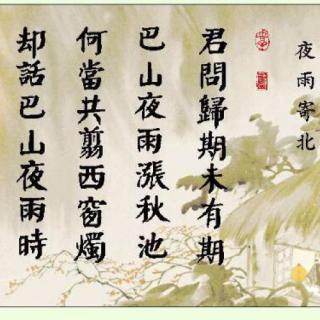 夜雨寄北
君問歸期未有期
巴山夜雨漲秋池
何當共翦西窗燭
却話巴山夜雨時